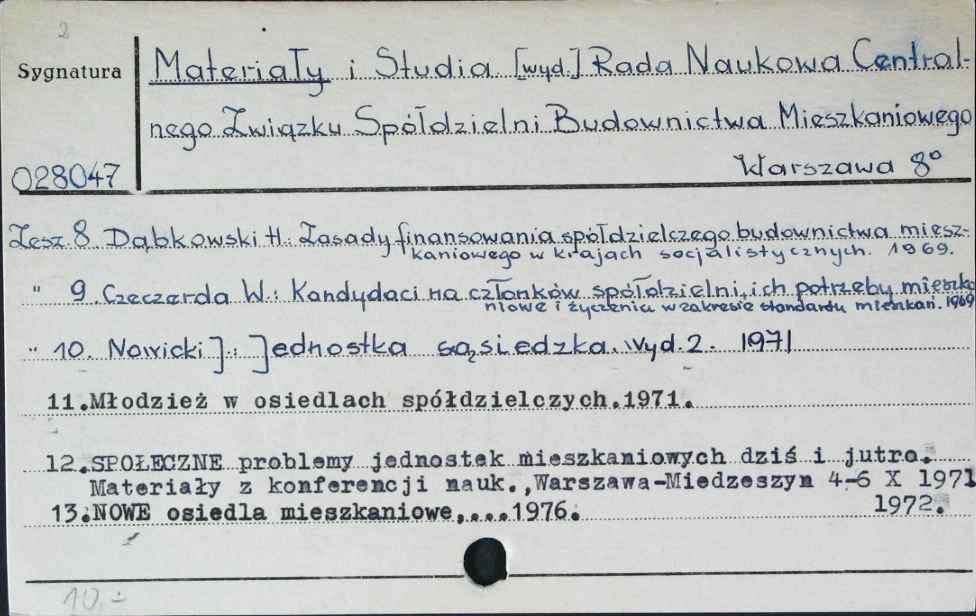 2
Sygnatura
Materiały i Studia [wyd.] Rada Naukowa Central-
nego Związku Spółdzielni Budownictwa Mieszkaniowego
028047
Warszawa 8°
Zesz. 8 Dąbkowski H.: Zasady finansowania spółdzielczego budownictwa miesz-
kaniowego w krajach socjalistycznych. 1969.
" 9. Czeczerda W.: Kandydaci na członków spółdzielni, ich potrzeby mieszka
niowe i życzenia w zakresie standardu mieszkań. 1969
" 10. Nowicki J.: Jednostka sąsiedzka. Wyd. 2. 1971
11. Młodzież w osiedlach spółdzielczych. 1971.
12. SPOŁECZNE problemy jednostek mieszkaniowych dziś i jutro.
Materiały z konferencji nauk., Warszawa-Miedzeszyn 4-6 X 1971
1972.
13. NOWE osiedla mieszkaniowe,....1976.
10,-